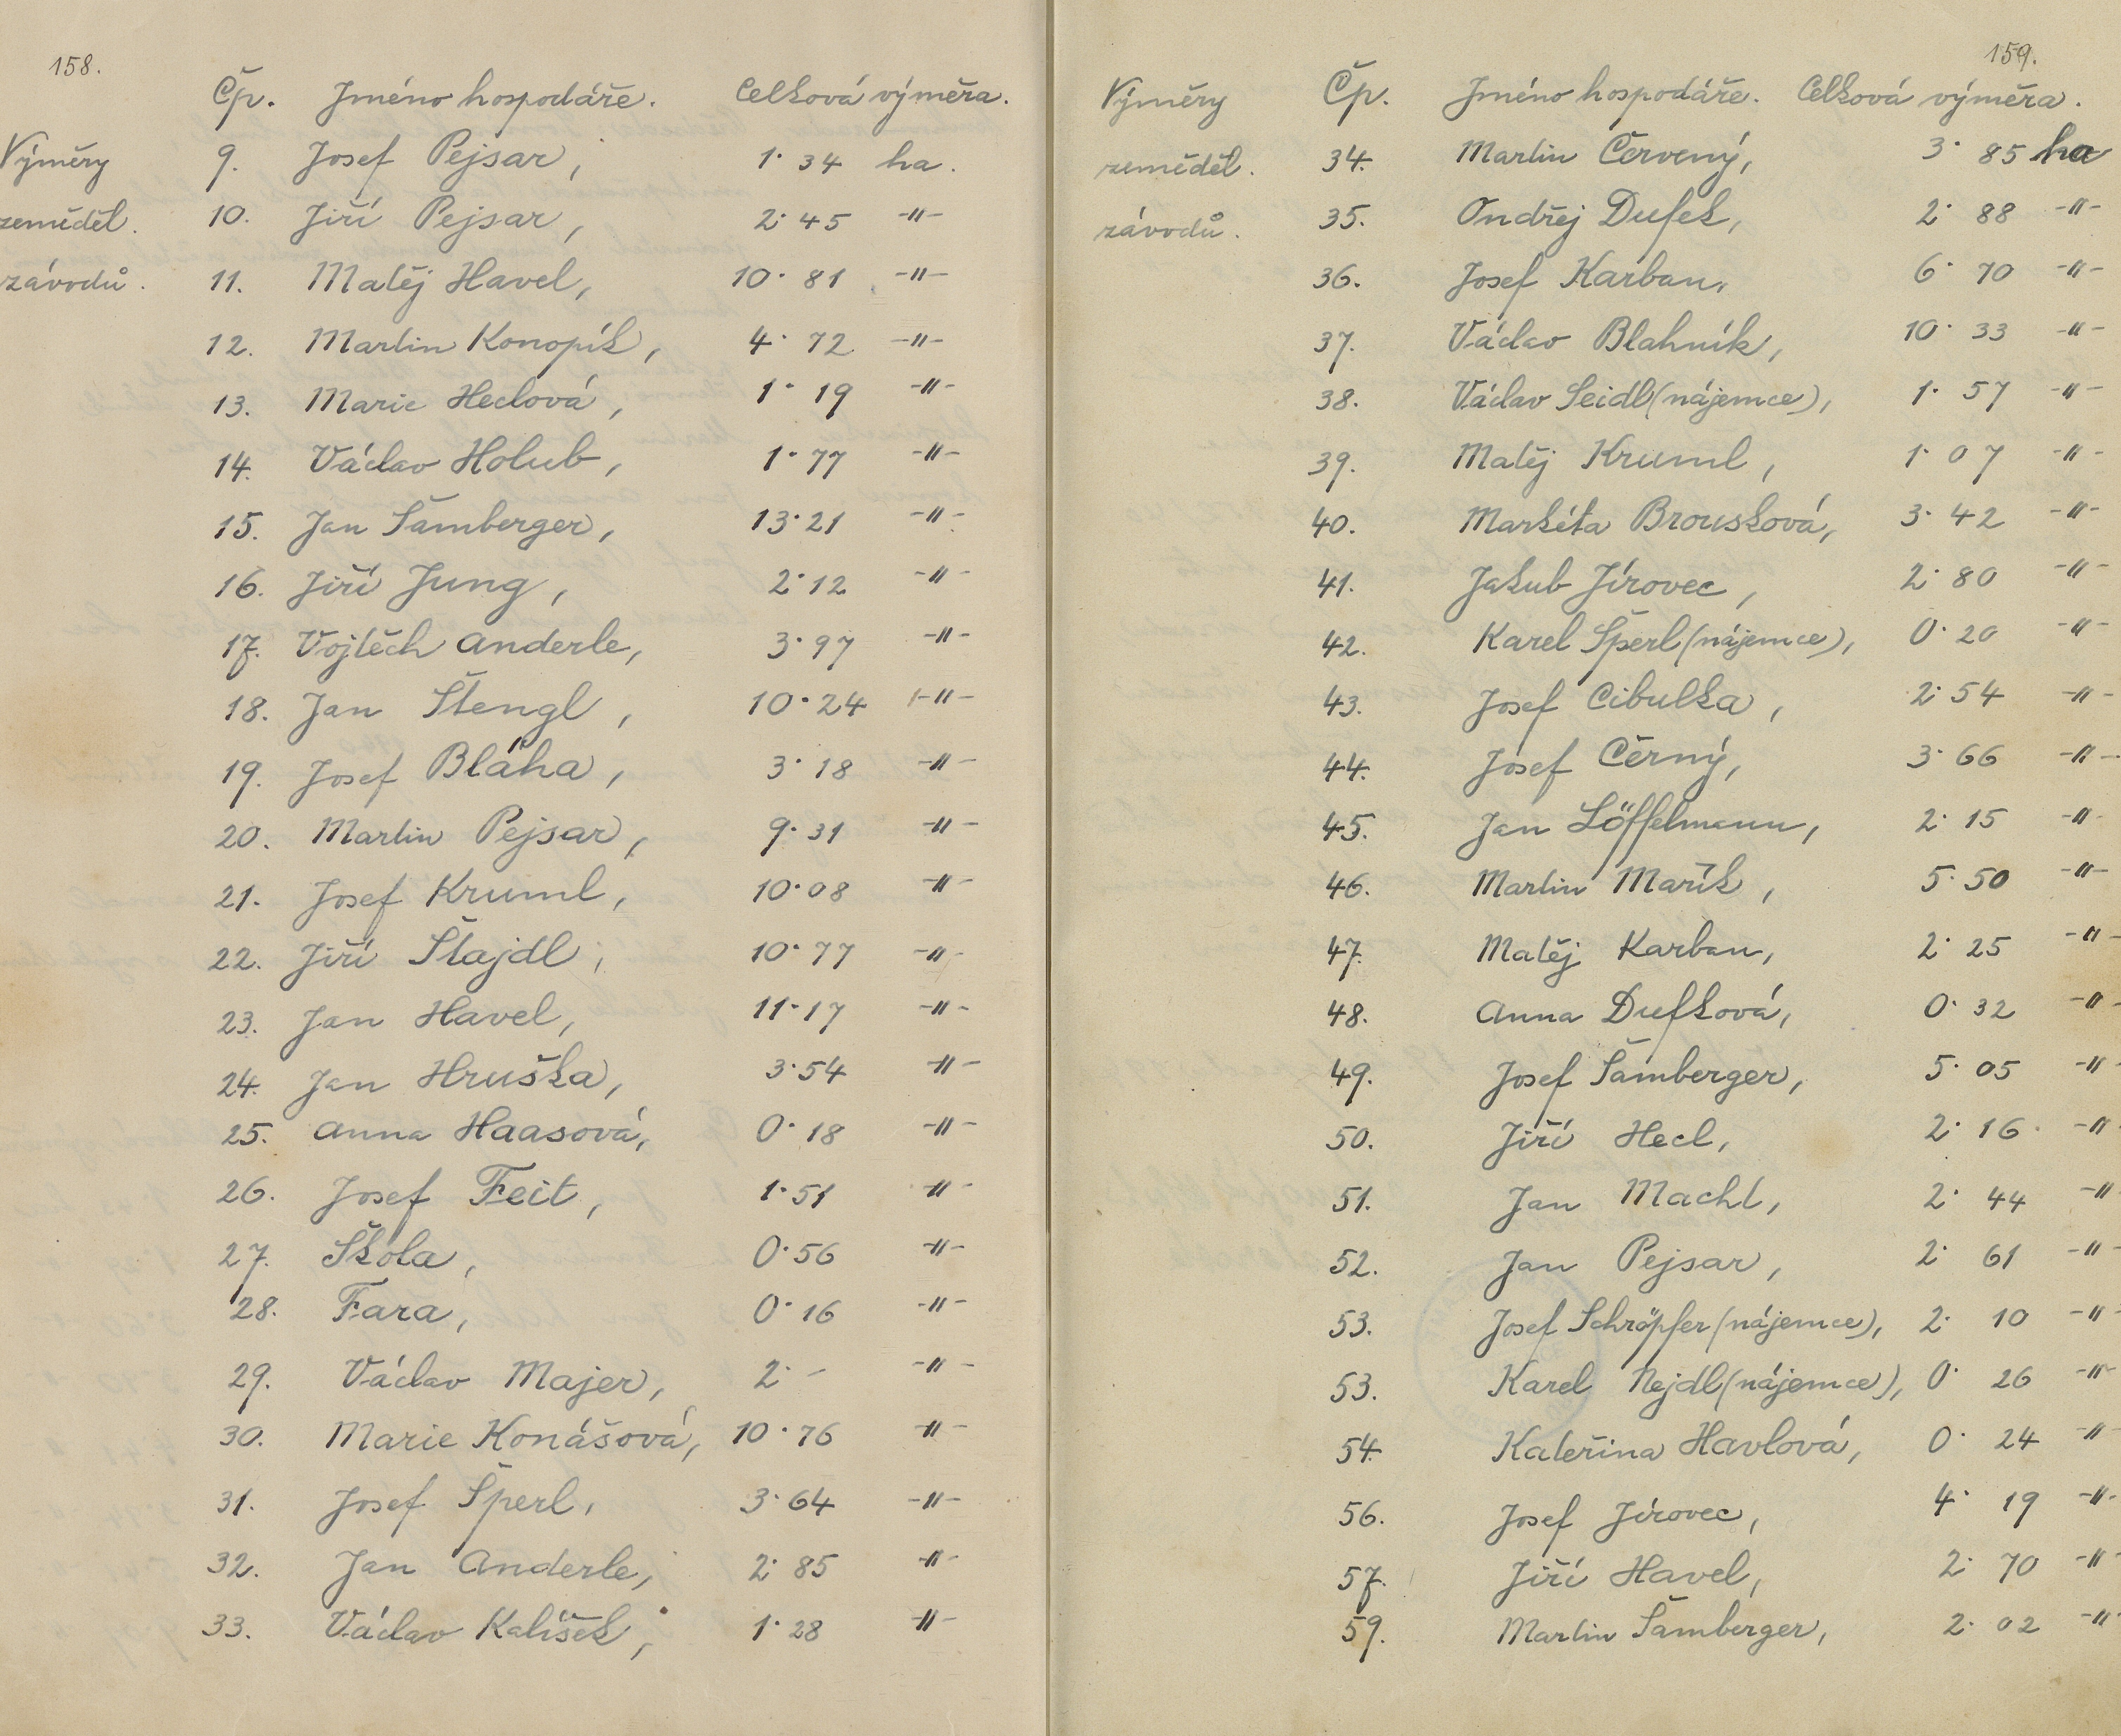 158.
Čp. Jméno hospodáře. Celková výměra.
Výměry
zeměděl.
závodů.
9. Josef Pejsar, 1·34 ha.
10. Jiří Pejsar, 2·45 -"-
11. Matěj Havel, 10·81 -"-
12. Martin Konopík, 4·72 -"-
13. Marie Heclová, 1·19 -"-
14. Václav Holub, 1·77 -"-
15. Jan Šamberger, 13·21 -"-
16. Jiří Jung, 2·12 -"-
17. Vojtěch Anderle, 3·97 -"-
18. Jan Štengl, 10·24 -"-
19. Josef Bláha, 3·18 -"-
20. Martin Pejsar, 9·31 -"-
21. Josef Kruml, 10·08 -"-
22. Jiří Štajdl, 10·77 -"-
23. Jan Havel, 11·17 -"-
24. Jan Hruška, 3·54 -"-
25. Anna Haasová, 0·18 -"-
26. Josef Feit, 1·51 -"-
27. Škola, 0·56 -"-
28. Fara, 0·16 -"-
29. Václav Majer, 2·- -"-
30. Marie Konášová, 10·76 -"-
31. Josef Šperl, 3·64 -"-
32. Jan Anderle, 2·85 -"-
33. Václav Kalíšek, 1·28 -"-
159.
Výměry
zeměděl.
závodů.
Čp. Jméno hospodáře. Celková výměra.
34. Martin Červený, 3·85 ha
35. Ondřej Dufek, 2·88 -"-
36. Josef Karban, 6·70 -"-
37. Václav Blahník, 10·33 -"-
38. Václav Seidl (nájemce), 1·57 -"-
39. Matěj Kruml, 1·07 -"-
40. Markéta Brousková, 3·42 -"-
41. Jakub Jírovec, 2·80 -"-
42. Karel Šperl (nájemce), 0·20 -"-
43. Josef Cibulka, 2·54 -"-
44. Josef Černý, 3·66 -"-
45. Jan Löffelmann, 2·15 -"-
46. Martin Mařík, 5·50 -"-
47. Matěj Karban, 2·25 -"-
48. Anna Dufková, 0·32 -"-
49. Josef Šamberger, 5·05 -"-
50. Jiří Hecl, 2·16 -"-
51. Jan Machl, 2·44 -"-
52. Jan Pejsar, 2·61 -"-
53. Josef Schröpfer (nájemce), 2·10 -"-
53. Karel Nejdl (nájemce), 0·26 -"-
54. Kateřina Havlová, 0·24 -"-
56. Josef Jírovec, 4·19 -"-
57. Jiří Havel, 2·70 -"-
59. Martin Šamberger, 2·02 -"-